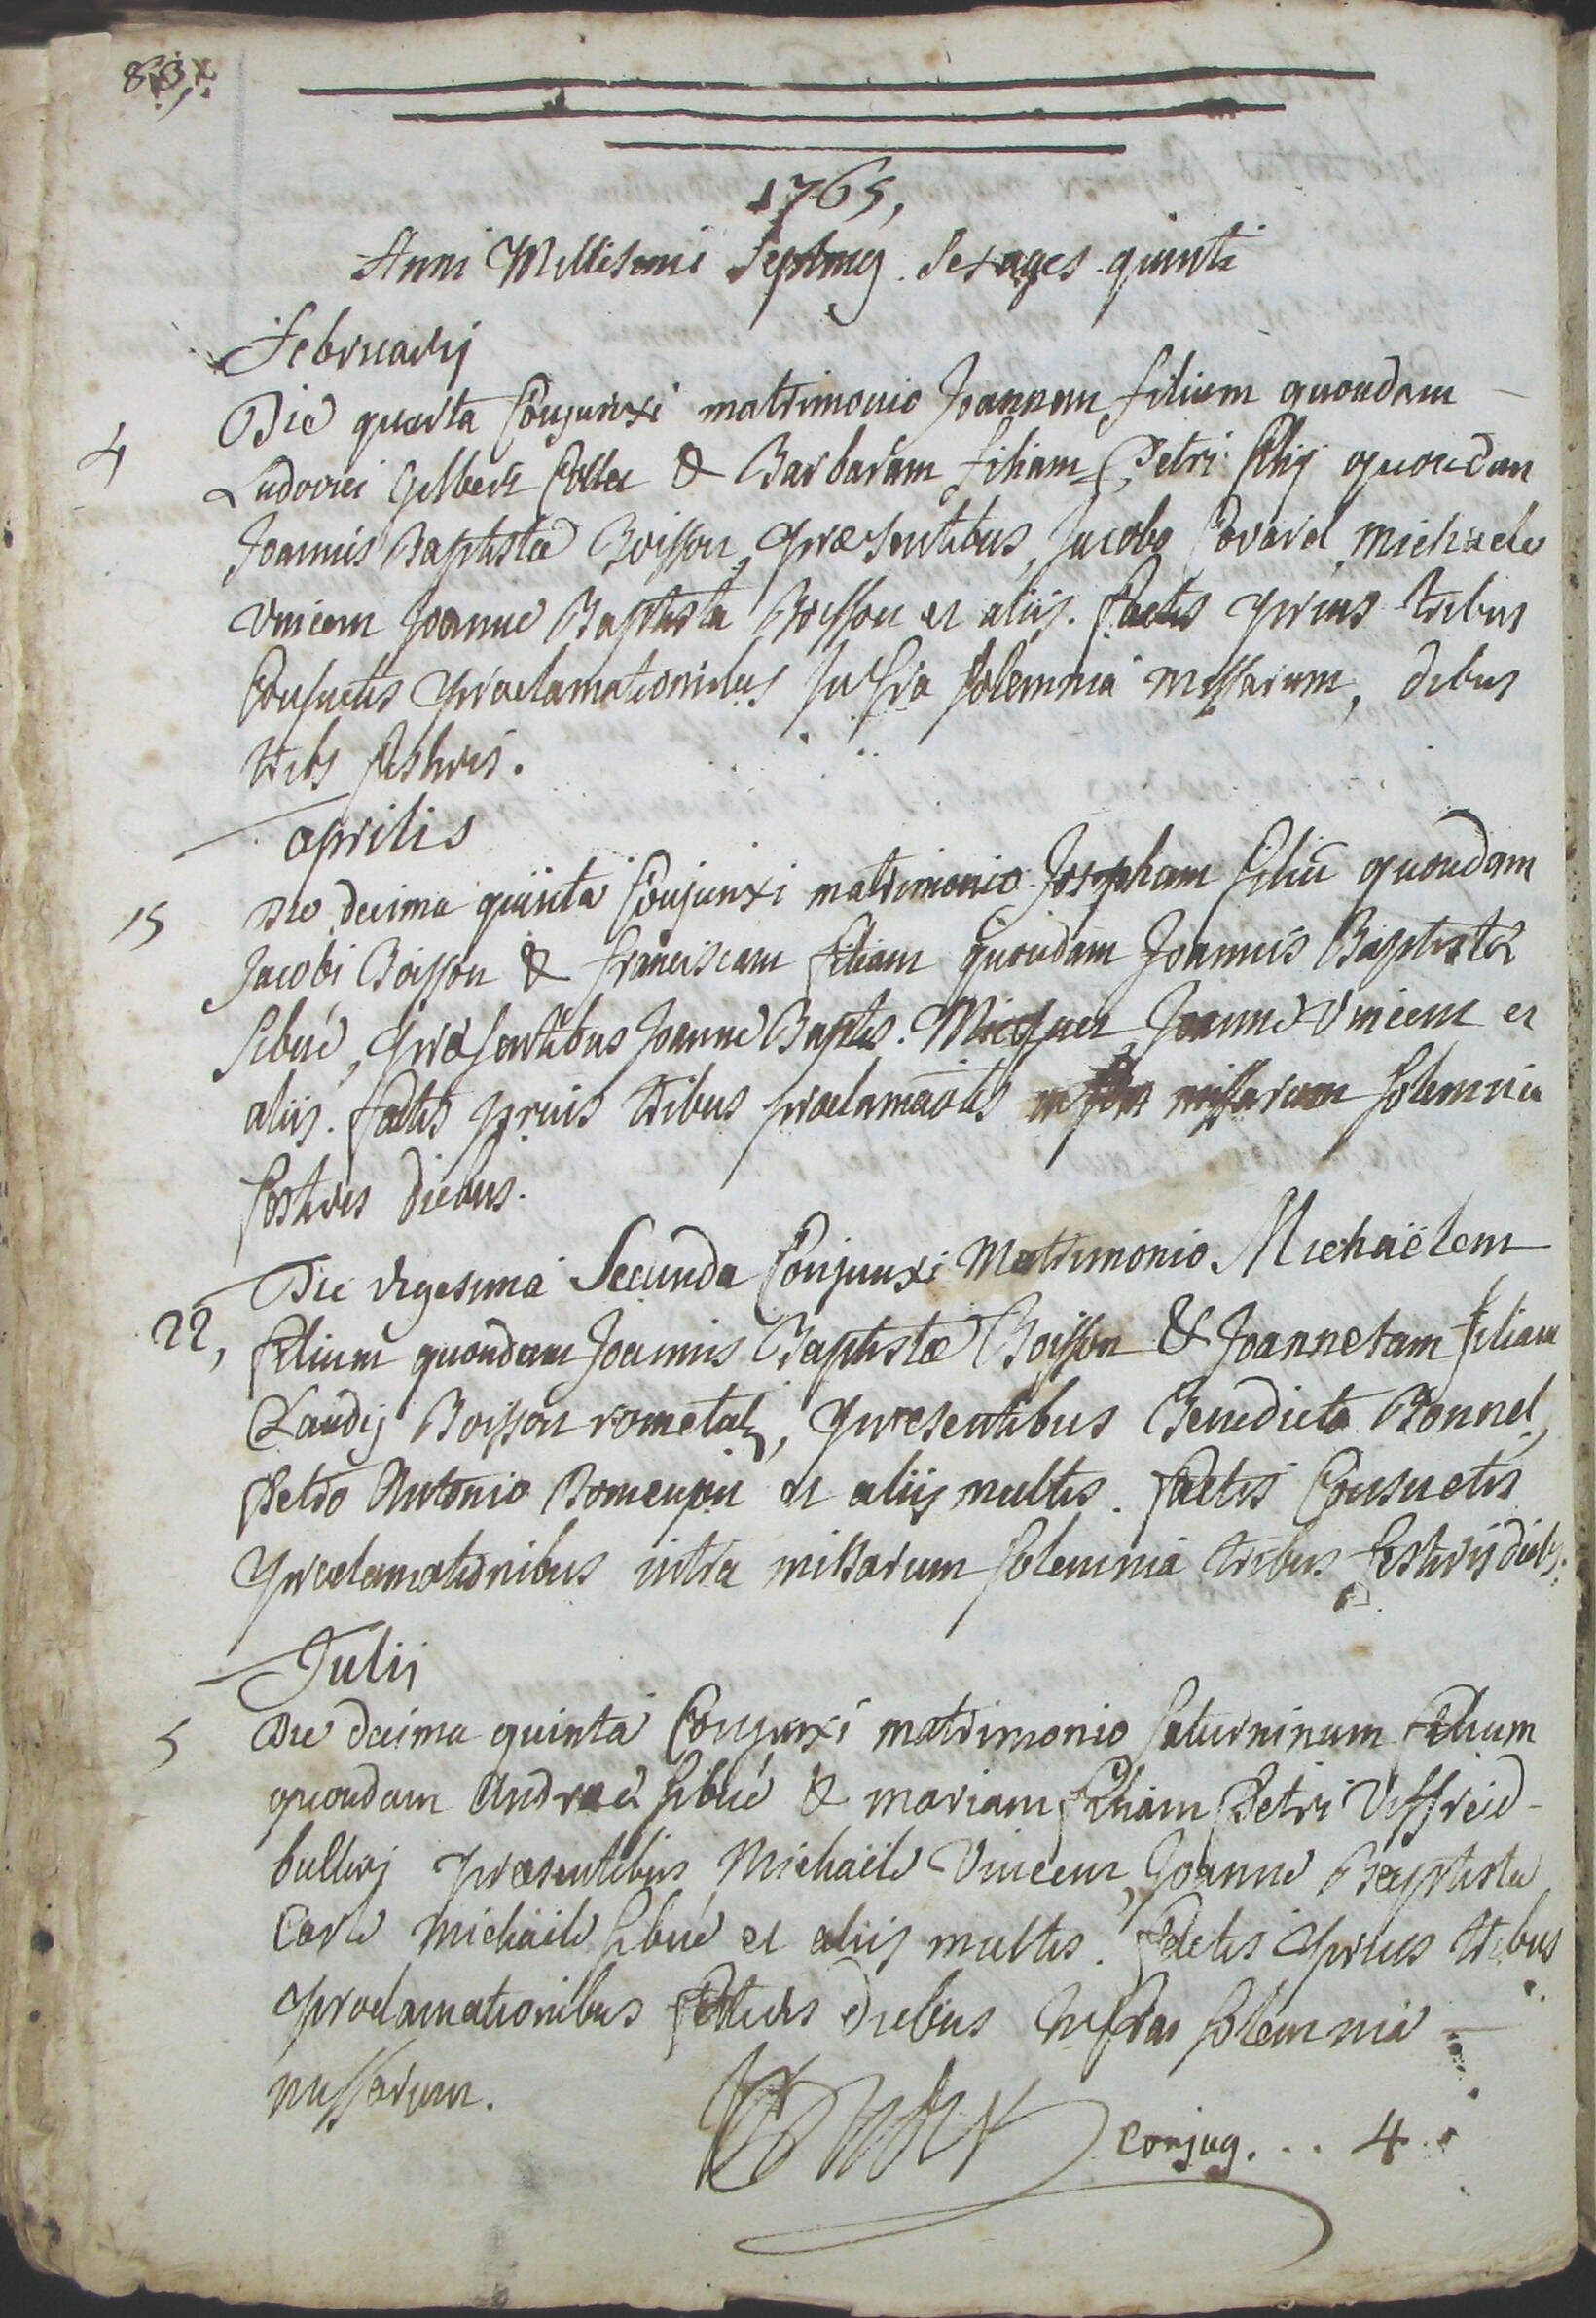 83
1765,
Anni Millesimi Septing. Sexages. quinti
Februarij
4 Die quarta Conjunxi matrimonio Joannem filium quondam
Ludovici Gilbert Collet & Barbaram filiam Petri filij quondam
Joannis Baptistæ Boisson, præsentibus, Jacobo Covarel, Michaele
Vincent Joanne Baptista Boisson et aliis. factis prius tribus
Consuetis proclamationibus Infra solemnia missarum, diebus
trib9 festivis.
aprilis
15 Die decima quinta Conjunxi matrimonio Josepham filiū quondam
Jacobi Boisson & franciscam filiam quondam Joannis Baptistæ
Sibué, præsentibus Joanne Baptis. Jeanne Vincent et
aliis. factis prius tribus proclamāotis infra missarum solemnia
festivis diebus.
22, Die Vigesima Secunda Conjunxi Matrimonio Michaëlem
filium quondam Joannis Baptistæ Boisson & Joannetam filiam
Claudij Boisson rometaz, præsentibus Benedicto Bonnel,
Petro Antonio et aliis multis. factis Consuetis
proclamationibus intra missarum solemnia tribus festivis dieb9.
Julii
5 Die decima quinta Conjunxi matrimonio Saturninum filium
quondam Andreæ Sibué & mariam filiam Petri Viffreid-
bullieri præsentibus, Michaële Vincent, Joanne Baptista
Carle Michäile Sibué et aliis multis. factis prius tribus
proclamationibus festivis diebus infra solemnia
missarum.
conjug. . . 4